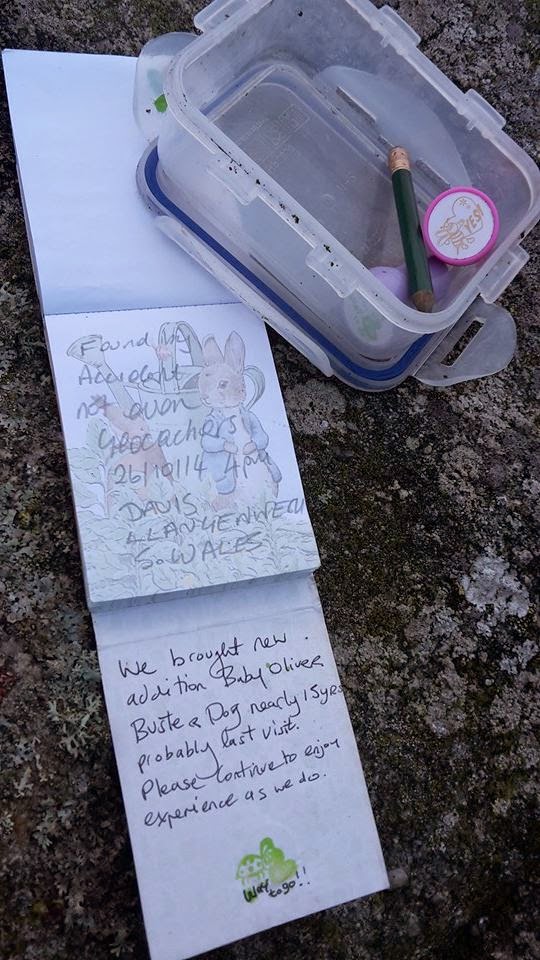 Found by
Accident
not even
Geocachers
26/10/14 4pm
DAVIS
S. WALES
We brought new
addition Baby Oliver
Buste a Dog nearly 15yrs
probably last visit.
Please continue to enjoy
experience as we do.
Way
to go!!
YES!